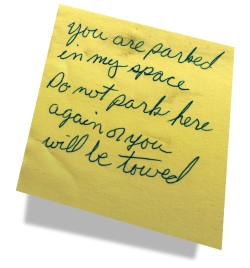 you are parked
in my space
Do not park here
again or you
will be towed